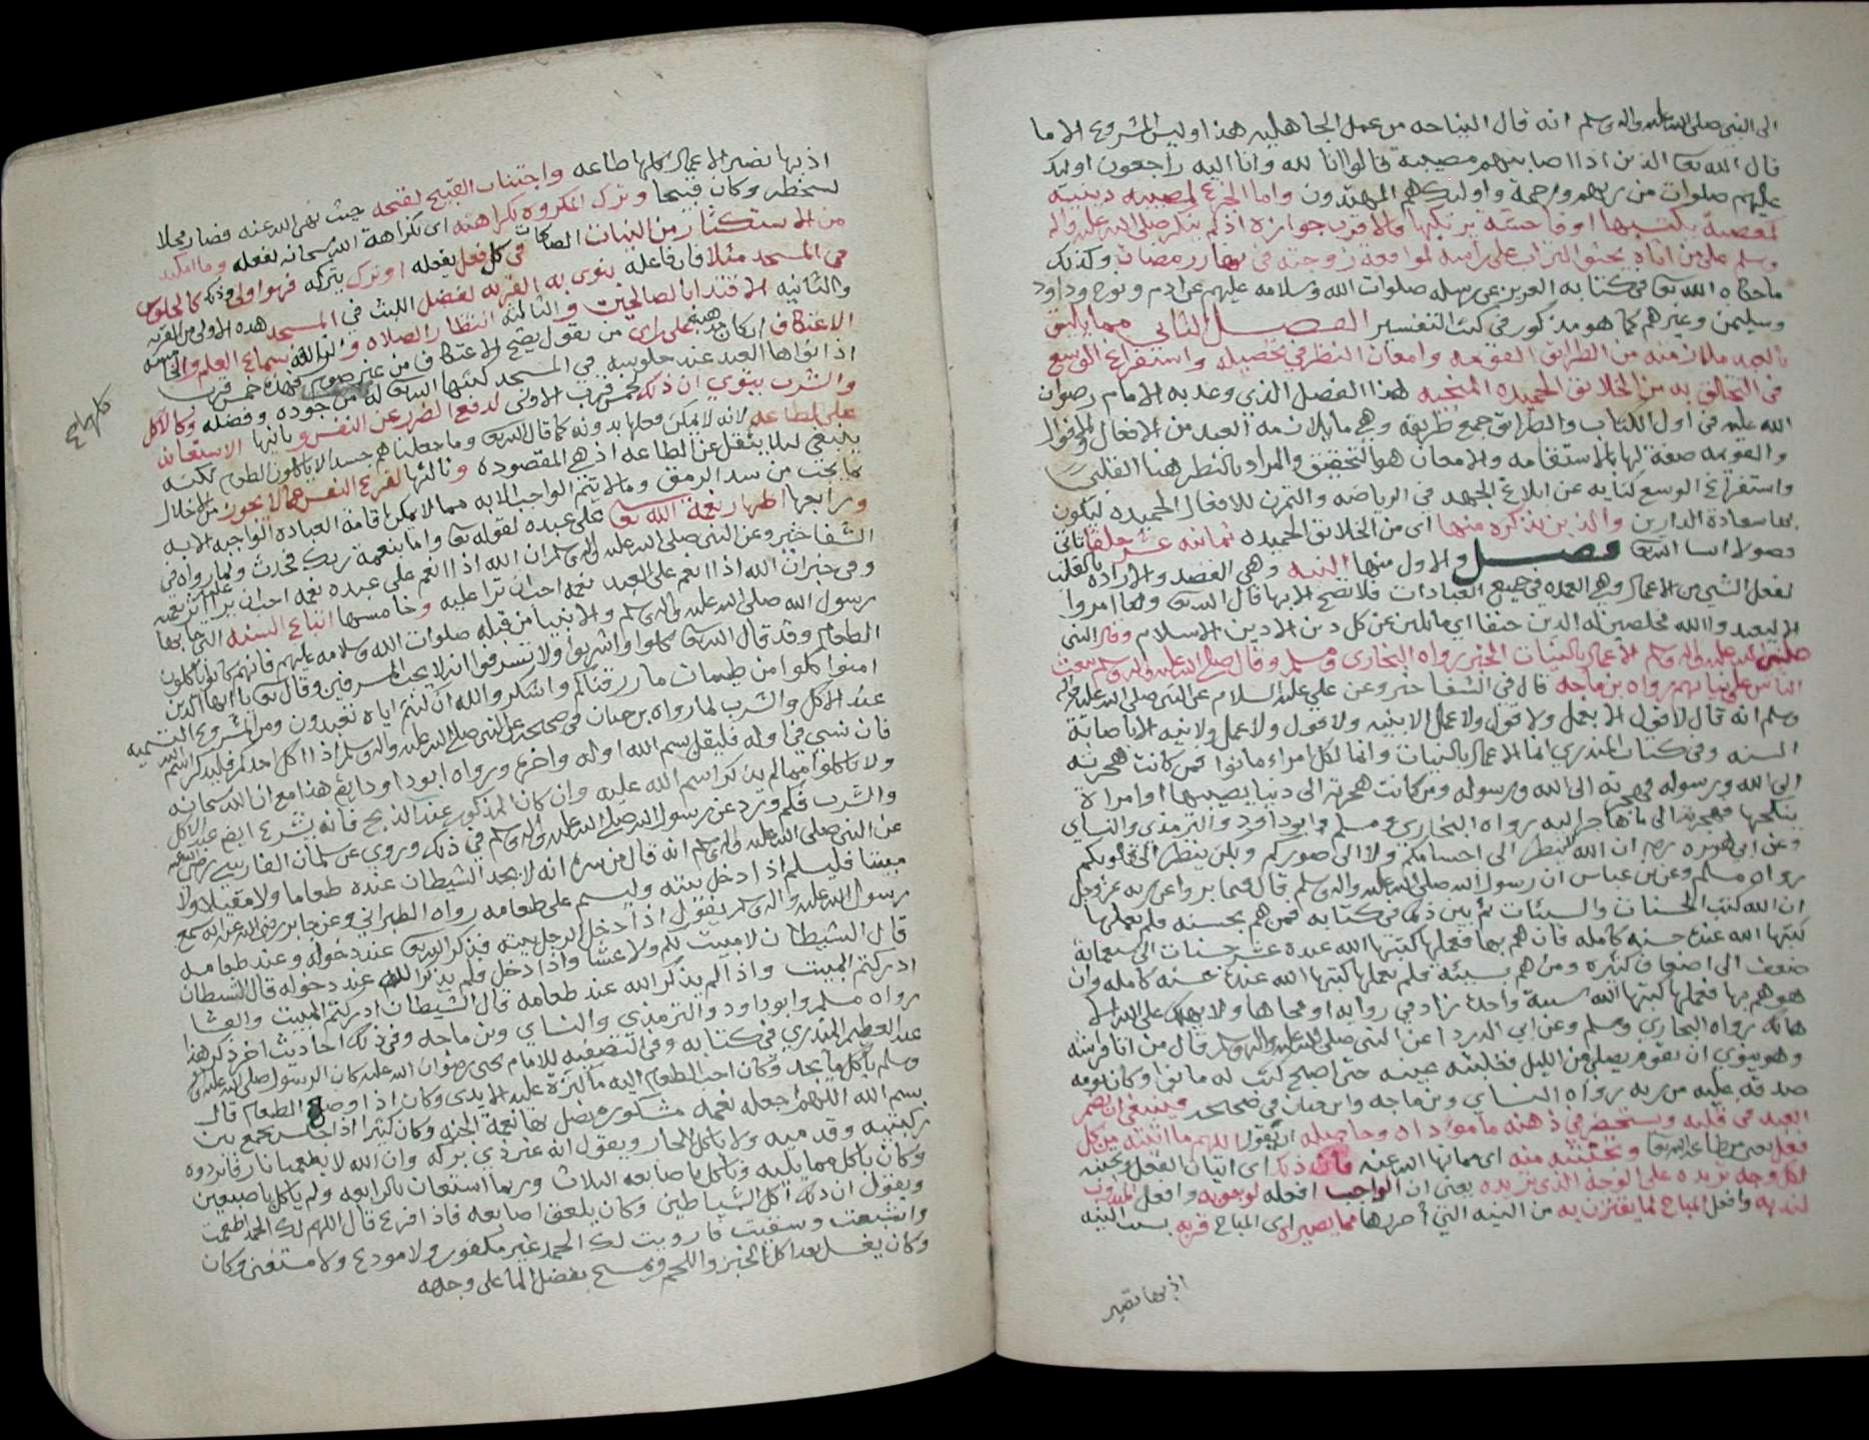 الى النبي صلى الله عليه واله وسلم انه قال النياحه من عمل الجاهليه هذا وليس المشروع الا ما
قال الله تعالى الذين اذا اصابتهم مصيبة قالوا انا لله وانا اليه راجعون اوليك
عليهم صلوات من ربهم ورحمة واوليك هم المهتدون واما الجزع لمصيبه دينية
كمعصية يكتسبها او فاحشة يرتكبها فالاقرب جوازه اذ لم ينكر صلى الله عليه واله
وسلم على من اتاه يحثو التراب على راسه لمواقعة زوجته في نهار رمضان وكذلك
ما حكاه الله تعالى في كتابه العزيز عن رسله صلوات الله وسلامه عليهم عن ادم ونوح وداود
وسليمن وغيرهم كما هو مذكور في كتب التفسير الفصل الثاني مما يليق
بالعبد ملازمته من الطرايق القويمه وامعان النظر في تحصيله واستفراغ الوسع
في التخلق به من الخلايق الحميده المنجيه هذا الفصل الذي وعد به الامام رضوان
الله عليه في اول الكتاب والطرايق جمع طريقه وهي ما يلازمه العبد من الافعال والاقوال
والقويمه صفة لها بالاستقامه والامعان هو التحقيق والمراد بالنظر هنا القلبي
واستفراغ الوسع كنايه عن ابلاغ الجهد في الرياضه والتمرن للافعال الحميده ليكون
بها سعادة الدارين والذين نذكره منها اى من الخلايق الحميده ثمانيه عشر خلقا تاتي
فصولا ان شا الله تعالى فصل والاول منها النيه وهي القصد والاراده بالقلب
لفعل الشي من الاعمال وهي العمده في جميع العبادات فلا تصح الا بها قال الله تعالى وما امروا
الا ليعبدوا الله مخلصين له الدين حنفا اي مائلين عن كل دين الا دين الاسلام وقال النبي
صلى الله عليه واله وسلم الاعمال بالنيات الخبر رواه البخاري ومسلم وقال صلى الله عليه واله وسلم يبعث
الناس على نياتهم رواه بن ماجه قال في الشفا خبر وعن علي عليه السلام عن النبي صلى الله عليه واله
وسلم انه قال لا قول الا بعمل ولا قول ولا عمل الا بنيه ولا قول ولا عمل ولا نيه الا باصابة
السنه وفي كتاب المنذري انما الاعمال بالنيات وانما لكل امراء ما نوا فمن كانت هجرته
الى الله ورسوله فهجرته الى الله ورسوله ومن كانت هجرته الى دنيا يصيبها او امراة
ينكحها فهجرته الى ما هاجر اليه رواه البخاري ومسلم وابو داود والترمذي والنساي
وعن ابي هريره ان الله لا ينظر الى اجسامكم ولا الى صوركم ولكن ينظر الى قلوبكم
رواه مسلم وعن بن عباس ان رسول الله صلى الله عليه واله وسلم قال فيما يروا عن ربه عز وجل
ان الله كتب الحسنات والسيئات ثم بين ذلك في كتابه فمن هم بحسنه فلم يعملها
كتبها الله عنده حسنه كامله فان هم بها فعملها كتبها الله عنده عشر حسنات الى سبعمائة
ضعف الى اضعاف كثيره ومن هم بسيئه فلم يعملها كتبها الله عنده حسنه كامله وان
هو هم بها فعملها كتبها الله سيئة واحدة زاد في روايه او محاها ولا يهلك على الله الا
هالك رواه البخاري ومسلم وعن ابي الدرداء عن النبي صلى الله عليه واله وسلم قال من اتا فراشه
وهو ينوي ان يقوم يصلي من الليل فغلبته عينه حتى اصبح كتب له ما نوا وكان نومه
صدقه عليه من ربه رواه النساي وبن ماجه وابن حبان في صحيحه فينبغي ان يضمر
العبد في قلبه ويستحضر في ذهنه ما معناه وحاصله ان يقول اللهم ما اتيته من كل
فعل يعني من طاعة الله تعالى وتجنبته منه اي مما نها الله عنه فان ذلك اى اتيان الفعل وتجنبه
لكل وجه تريده على الوجه الذي تريده يعني ان الواجب افعله لوجوبه وافعل المندوب
لندبه وافعل المباح لما يقترن به من النيه التي مما يصير اى المباح قربه بسبب النيه
اذ بها تصير
اذ بها تصير الاعمال كلها طاعه واجتناب القبيح لقبحه حيث نهى الله عنه فصار محلا
لسخطه وكان قبيحا وترك المكروه لكراهته اى لكراهة الله سبحانه لفعله وما امكنه
من الاستكثار من النيات الصالحات في كل فعل يفعله او ترك يتركه فهو اولى وذلك كالجلوس
في المسجد مثلا فان فاعله ينوى به القربه لفضل اللبث في المسجد هذه الاولى من القرب
والثانيه الاقتدا بالصالحين والثالثه انتظار الصلاه والرابعه سماع العلم والخامسه
الاعتكاف ان كان مذهبه على راى من يقول يصح الاعتكاف من غير صوم فهذه خمس قرب
اذا نواها العبد عند جلوسه في المسجد كتبها الله تعالى له من جوده وفضله وكالاكل
والشرب ينوي ان ذلك خمس قرب الاولى لدفع الضرر عن النفس وثانيها الاستعانه
على الطاعه لانه لا يمكن فعلها بدونه كما قال الله تعالى وما جعلناهم جسدا لا ياكلون الطعام لكنه
ينبغي ليلا يثقل عن الطاعه اذ هي المقصوده وثالثها لفزع النفس عما لا يجوز من الاخلال
بما يجب من سد الرمق وما لا يتم الواجب الا به مما لا يمكن اقامة العباده الواجبه الا به
ورابعها اظهار نعمة الله تعالى على عبده لقوله تعالى واما بنعمة ربك فحدث ولما رواه في
الشفا خبر وعن النبي صلى الله عليه واله وسلم ان الله اذا انعم على عبده نعمه احب ان يرا اثر نعمته عليه
وفي خبر ان الله اذا انعم على العبد نعمه احب ان ترا عليه وخامسها اتباع السنه التي جا بها
رسول الله صلى الله عليه واله وسلم والانبيا من قبله صلوات الله وسلامه عليهم فانهم كانوا ياكلون
الطعام وقد قال الله تعالى كلوا واشربوا ولا تسرفوا انه لا يحب المسرفين وقال تعالى يا ايها الذين
امنوا كلوا من طيبات ما رزقناكم واشكروا الله ان كنتم اياه تعبدون ومن المشروع التسميه
عند الاكل والشرب لما رواه بن حبان في صحيحه عن النبي صلى الله عليه واله وسلم اذا اكل احدكم فليذكر اسم الله
فان نسي في اوله فليقل بسم الله اوله واخره ورواه ابو داود ايضا هذا مع ان الله سبحانه
ولا تاكلوا مما لم يذكر اسم الله عليه وان كان المذكور عند الذبح فانه يشرع ايضا عند الاكل
والشرب فكم ورد عن رسول الله صلى الله عليه واله وسلم في ذلك وروي عن سلمان الفارسي رضي الله عنه
عن النبي صلى الله عليه واله وسلم انه قال من سره انه لا يجد الشيطان عنده طعاما ولا مقيلا ولا
مبيتا فليسلم اذا دخل بيته وليسم على طعامه رواه الطبراني وعن جابر رضي الله عنه انه سمع
رسول الله عليه واله وسلم يقول اذا دخل الرجل بيته فذكر الله تعالى عند دخوله وعند طعامه
قال الشيطان لا مبيت لكم ولا عشا واذا دخل فلم يذكر الله عند دخوله قال الشيطان
ادركتم المبيت واذا لم يذكر الله عند طعامه قال الشيطان ادركتم المبيت والعشا
رواه مسلم وابو داود والترمذي والنساي وبن ماجه وفي ذلك احاديث اخر ذكر هذا
عبد العظيم المنذري في كتابه وفي التصفيه للامام يحيى رضوان الله عليه كان الرسول صلى الله عليه واله
وسلم ياكل ما يجد وكان احب الطعام اليه ما كثرة عليه الايدي وكان اذا وضع الطعام قال
بسم الله اللهم اجعله نعمه مشكوره تصل بها نعمة الجنه وكان كثيرا اذا جلس يجمع بين
ركبتيه وقدميه ولا ياكل الحار ويقول انه غير ذي بركه وان الله لا يطعمنا نارا فابردوه
وكان ياكل مما يليه وياكل باصابعه الثلاث وربما استعان بالرابعه ولم ياكل باصبعين
ويقول ان ذلك اكل الشياطين وكان يلعق اصابعه فاذا فرغ قال اللهم لك الحمد اطعمت
واشبعت وسقيت فارويت لك الحمد غير مكفور ولا مودع ولا مستغنى وكان
وكان يغسل يده اكل الخبز واللحم ويمسح بفضل الما على وجهه